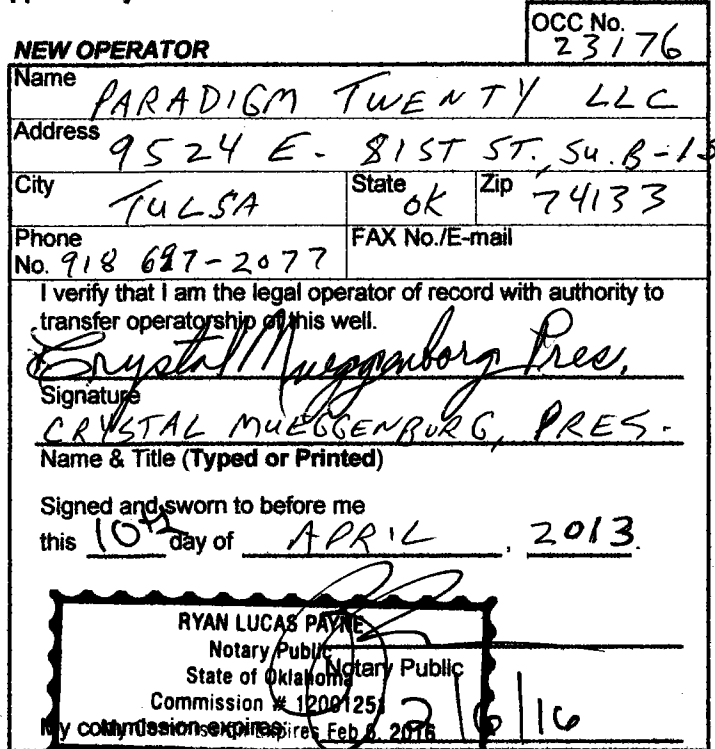 OCC No.
23176
NEW OPERATOR
Name
PARADIGM TWENTY LLC
Address
9524 E. 81ST ST., Su. B-
City
TULSA
State
OK
Zip
74133
Phone
No. 918 627-2077
FAX No./E-mail
I verify that I am the legal operator of record with authority to
transfer operatorship of this well.
Crystal Mueggenborg Pres.
Signature
CRYSTAL MUEGGENBORG, PRES.
Name & Title (Typed or Printed)
Signed and sworn to before me
this 10th day of APRIL, 2013.
RYAN LUCAS PAYNE
Notary Public
State of Oklahoma
Notary Public
Commission # 12001251
My commission expires
Expires Feb 6, 2016
2/6/16